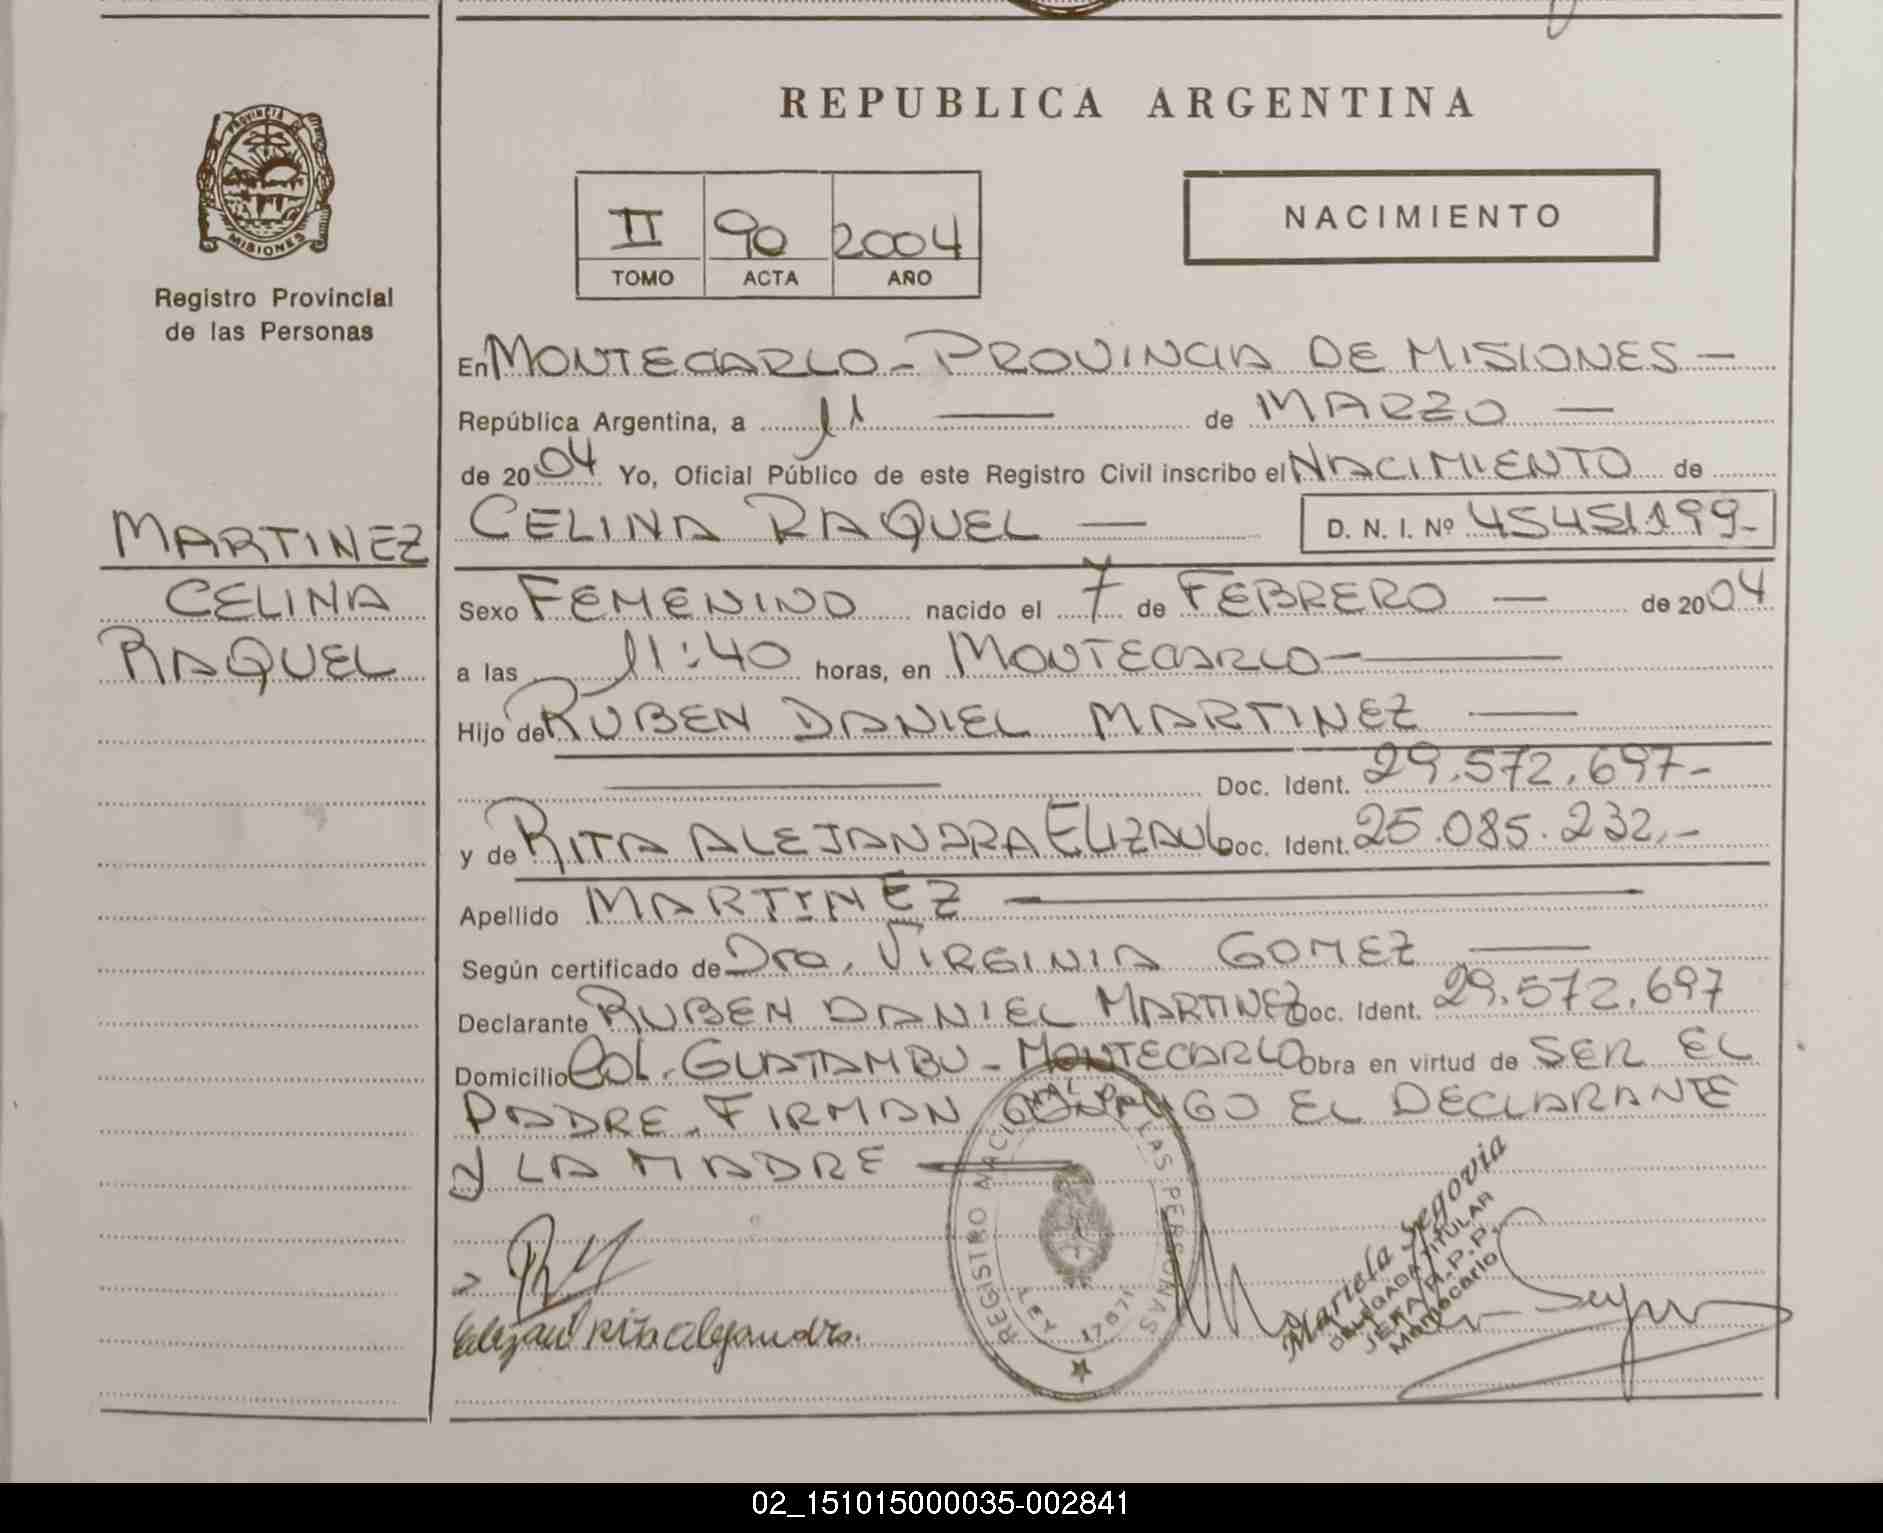 REPUBLICA ARGENTINA
PROVINCIA DE
MISIONES
Registro Provincial
de las Personas
II 90 2004
TOMO ACTA AÑO
NACIMIENTO
En MONTECARLO - PROVINCIA DE MISIONES —
República Argentina, a 11 — de MARZO —
de 2004 Yo, Oficial Público de este Registro Civil inscribo el NACIMIENTO de
CELINA RAQUEL — D. N. I. Nº 45451199-
MARTINEZ
CELINA
RAQUEL
Sexo FEMENINO nacido el 7 de FEBRERO — de 2004
a las 11:40 horas, en MONTECARLO —
Hijo de RUBEN DANIEL MARTINEZ —
— Doc. Ident. 29.572.697-
y de RITA ALEJANDRA ELIZAUL Doc. Ident. 25.085.232.-
Apellido MARTINEZ —
Según certificado de Dra. VIRGINIA GOMEZ —
Declarante RUBEN DANIEL MARTINEZ Doc. Ident. 29.572.697
Domicilio Col. GUATAMBU - MONTECARLO Obra en virtud de SER EL
PADRE. FIRMAN CONMIGO EL DECLARANTE
y LA MADRE —
REGISTRO NACIONAL DE LAS PERSONAS
LEY 17671
Elizaul Rita Alejandra.
Mariela Segovia
DELEGADA TITULAR
Montecarlo
02_151015000035-002841